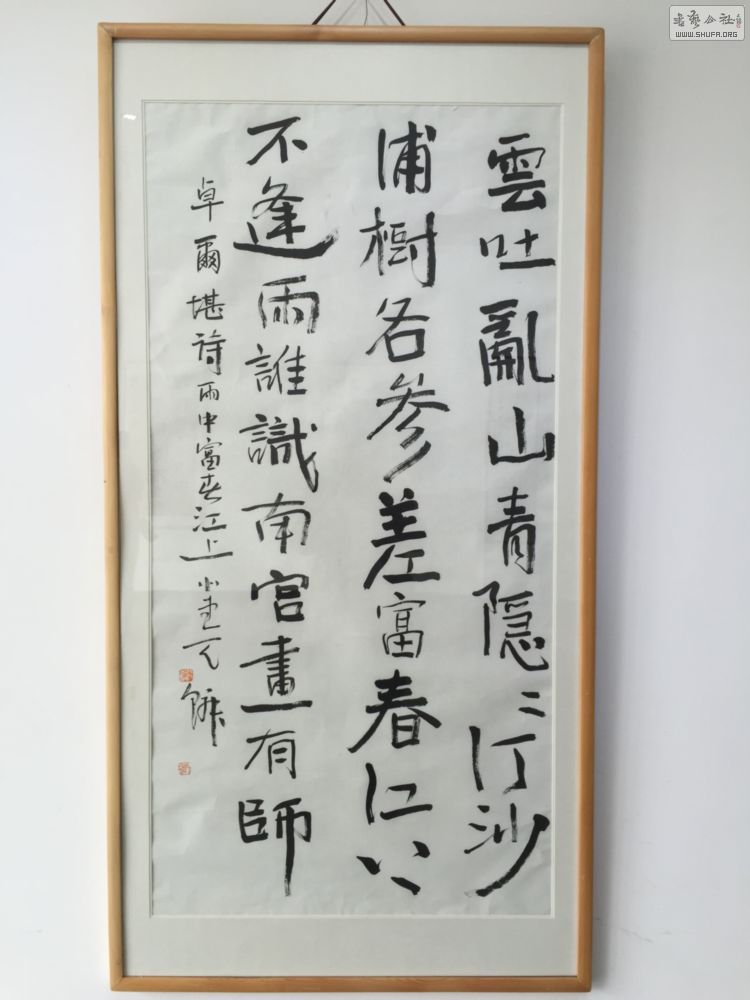 雲吐亂山青隱〻汀沙
浦樹各參差富春江上
不逢雨誰識南宮畫有師
卓爾堪詩雨中富春江上
書藝公社
WWW.SHUFA.ORG